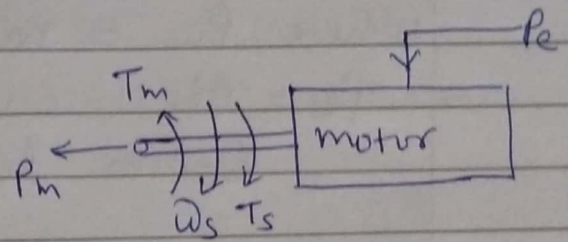 Pe
Tm
motor
Pm
ωs Ts